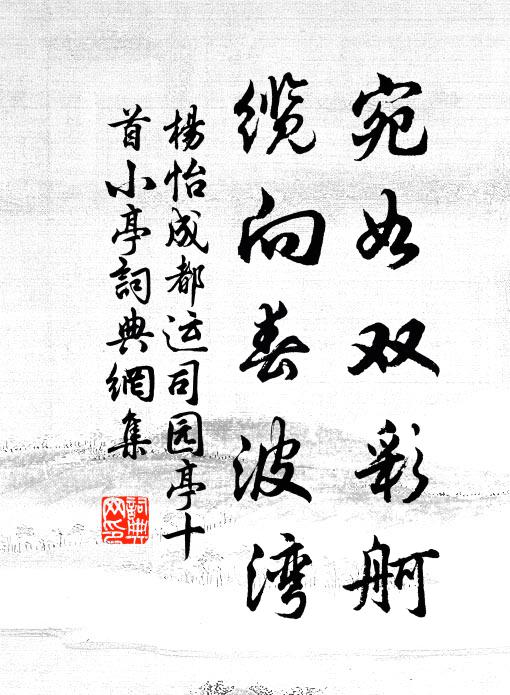 宛如双彩舸
缆向春波湾
楊怡成都运司园亭十
首小亭詞典網集
詞典网印